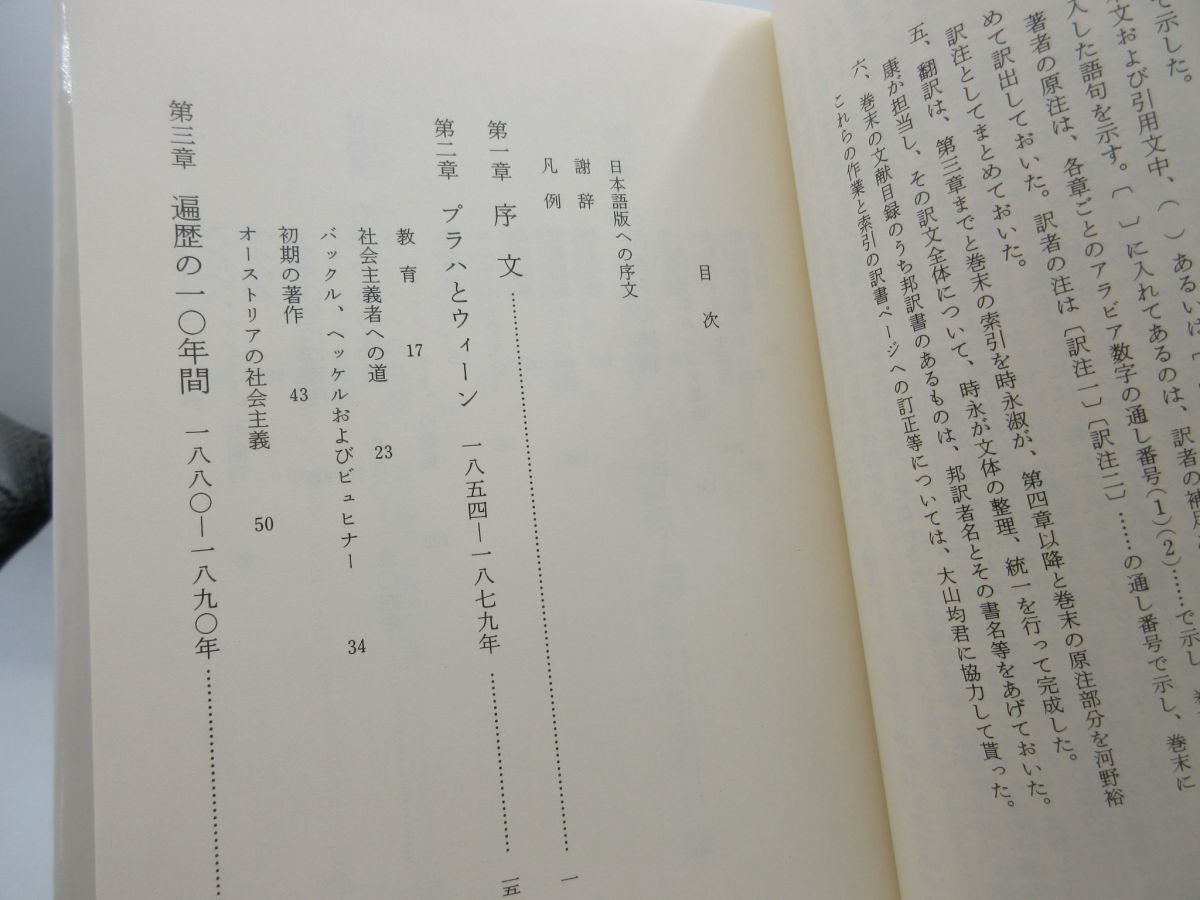 で示した。
文および引用文中、（ ）あるいは〔
入した語句を示す。〔 〕に入れてあるのは、訳者の補足
著者の原注は、各章ごとのアラビア数字の通し番号(1)(2)……で示し、巻
めて訳出しておいた。訳者の注は〔訳注一〕〔訳注二〕……の通し番号で示し、巻末に
訳注としてまとめておいた。
五、翻訳は、第三章までと巻末の索引を時永淑が、第四章以降と巻末の原注部分を河野裕
康が担当し、その訳文全体について、時永が文体の整理、統一を行って完成した。
六、巻末の文献目録のうち邦訳書のあるものは、邦訳者名とその書名等をあげておいた。
これらの作業と索引の訳書ページへの訂正等については、大山均君に協力して貰った。
目 次
日本語版への序文
謝 辞
凡 例
第一章 序 文……………………一
第二章 プラハとウィーン 一八五四―一八七九年……………一五
教 育 17
社会主義者への道 23
バックル、ヘッケルおよびビュヒナー 34
初期の著作 43
オーストリアの社会主義 50
第三章 遍歴の一〇年間 一八八〇―一八九〇年……………